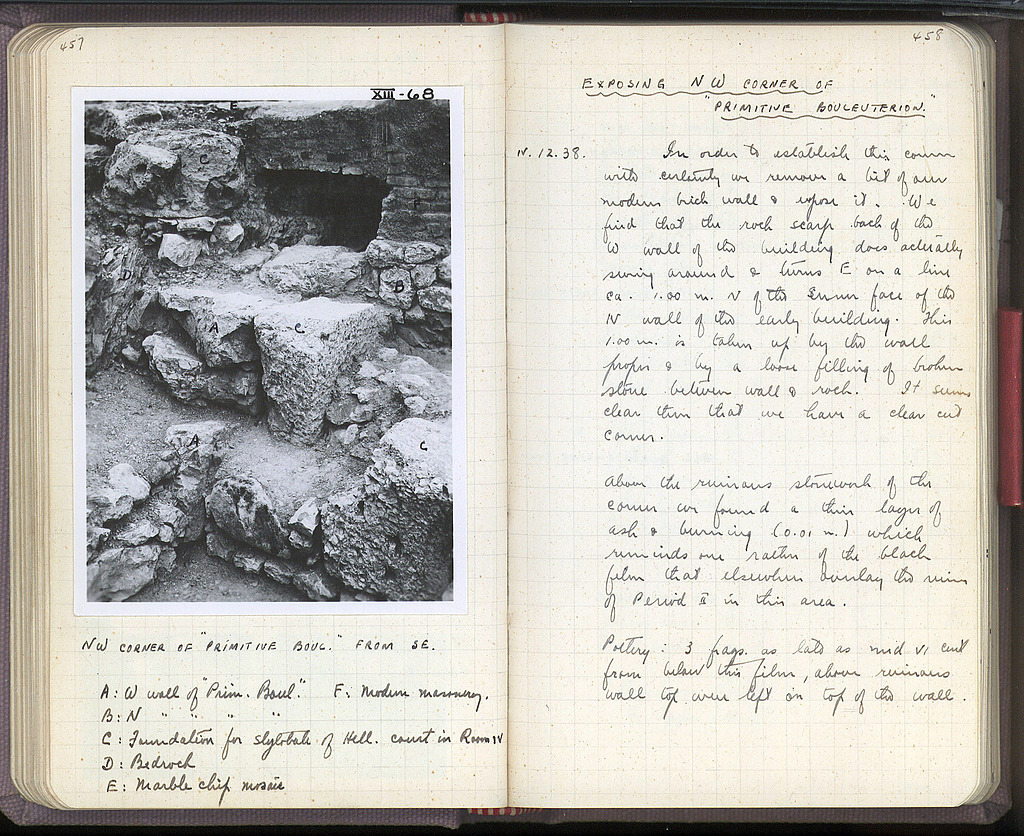 457
XIII-68
E
C
F
D
B
A
C
A
C
NW CORNER OF "PRIMITIVE BOUL." FROM SE.
A: W wall of "Prim. Boul." F: Modern masonry.
B: N " " " "
C: Foundation for stylobate of Hell. court in Room IV
D: Bedrock
E: Marble chip mosaic
458
EXPOSING NW CORNER OF
"PRIMITIVE BOULEUTERION."
IV.12.38. In order to establish this corner
with certainty we remove a bit of our
modern brick wall & expose it. We
find that the rock scarp back of the
W wall of the building does actually
swing around & turns E on a line
ca. 1.00 m. N of the inner face of the
N wall of the early building. This
1.00 m. is taken up by the wall
proper & by a loose filling of broken
stone between wall & rock. It seems
clear then that we have a clear cut
corner.
Above the ruinous stonework of the
corner we found a thin layer of
ash & burning (0.01 m.) which
reminds one rather of the black
film that elsewhere overlay the ruins
of Period II in this area.
Pottery: 3 frags. as late as mid VI cent
from below this film, above ruinous
wall top were left on top of the wall.